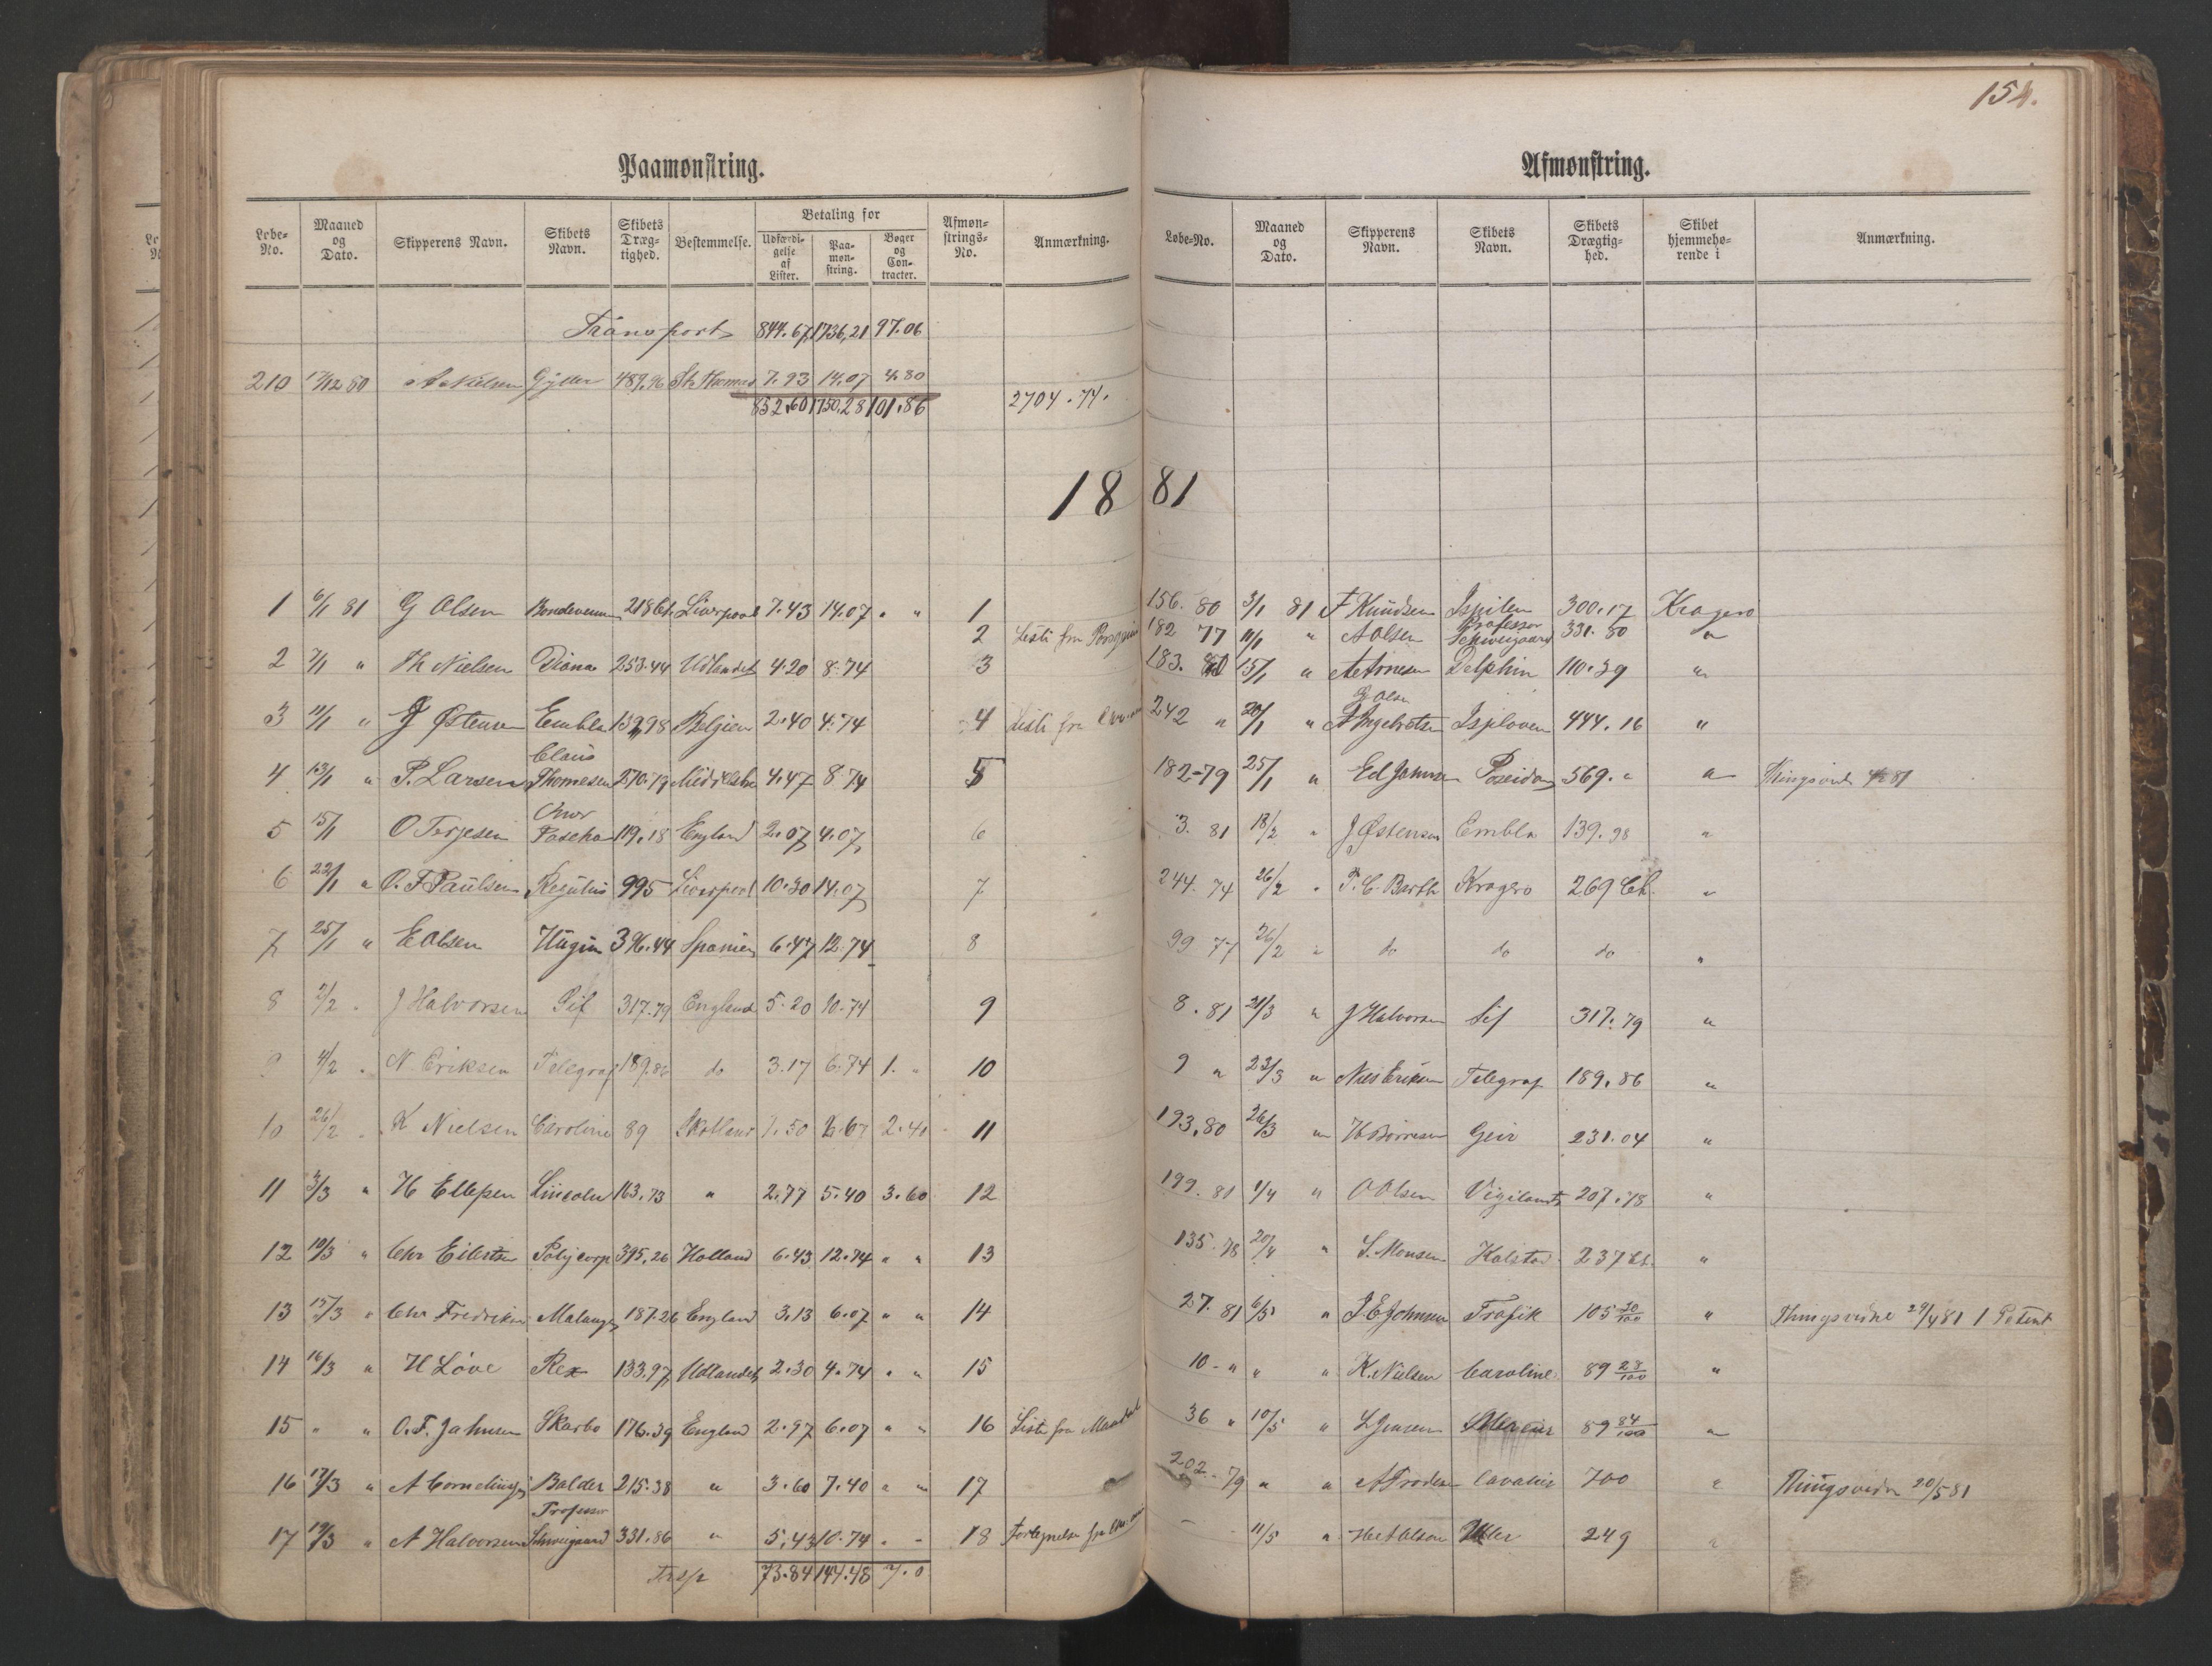 154.
Paamønstring.
Løbe-No. Maaned og Dato. Skipperens Navn. Skibets Navn. Skibets Drægtighed. Bestemmelse. Betaling for Udfærdigelse af Lister. Paamønstring. Bøger og Contracter. Afmønstrings-No. Anmærkning.
Transport 844.67 1736,21 97.06
210 17/12 80 A Nielsen Gyller 489,96 St Thomas 7.93 14.07 4.80
852.60 1750.28 101.86 2704.74.
18
1 6/1 81 G Olsen 218 Cl. Liverpool 7.43 14.07 " " 1
2 Liste fra
2 7/1 " Th Nielsen Diana 253.44 Udlandet 4.20 8.74 3
3 11/1 " J Østensen Embla 139,98 Belgien 2.40 4.74 4 Liste fra
4 13/1 " P. Larsen Claus Thomesen 270.79 4.47 8.74 5
5 15/1 O Terjesen 119.18 England 2.07 4.07 6
6 22/1 " O. F Paulsen Regulus 995 Liverpool 10.30 14.07 7
7 25/1 " E Olsen Hugin 396.44 Spanien 6.47 12.74 8
8 2/2 " J Halvorsen Sif 317.79 England 5.20 10.74 9
9 4/2 " N. Eriksen Telegraf 189.86 do 3.17 6.74 1. " 10
10 26/2 " K Nielsen Caroline 89 Skotland 1.50 2.67 2.40 11
11 3/3 " H Ellefsen Lincoln 163.73 " 2.77 5.40 3.60 12
12 10/3 " Chr Eilertsen Polycarp 395.26 Holland 6.43 12.74 " " 13
13 15/3 " Chr Fredriksen Malanger 187.26 England 3.13 6.07 " " 14
14 16/3 " H Løve Rex 133.97 Udlandet 2.30 4.74 " " 15
15 " " O. F. Johnsen Skarbo 176.39 England 2.97 6.07 " " 16 Liste fra Mandal
16 17/3 " A Corneliussen Balder 215.38 " 3.60 7.40 " " 17
17 19/3 " A Halvorsen Professor Schweigaard 331.86 " 5.43 10.74 " - 18
Trsp 73.84 144.48 7.0
Afmønstring.
Løbe-No. Maaned og Dato. Skipperens Navn. Skibets Navn. Skibets Drægtighed. Skibet hjemmehørende i Anmærkning.
81
156. 80 3/1 81 F Knudsen Ispilen 300.17 Kragerø
182 77 11/1 " A Olsen Professor Schweigaard 331.80 "
183. 80 15/1 " Delphin 110.39 "
242 " 20/1 " G Olsen A Ingebretsen Isploven 444.16 "
182-79 25/1 " Ed Johnsen Poseidon 569. " "
3. 81 18/2 " J Østensen Embla 139.98 "
244. 74 26/2 " P. C. Barth Kragerø 269 Cl. "
99 77 26/2 " do do do "
8. 81 21/3 " J Halvorsen Sif 317.79 "
9 " 23/3 " Niels Eriksen Telegraf 189.86 "
193,80 26/3 " H Børresen Geir 231.04 "
199. 80 1/4 " O Olsen Vigilant 207.78 "
135. 78 20/4 " S. Monsen Kalstad 237 Cl. "
27. 81 6/5 " J E Johnsen Trafik 105 30/100 " Thingsvidne 29/4 81 1 Patent
10 - " " " K. Nielsen Caroline 89 28/100 "
36 " 10/5 " L Jensen 89 84/100 "
202. 79 " " A Frodesen Cavalier 700 " Thingsvidne 20/5 81
- 11/5 " Uller 249 "